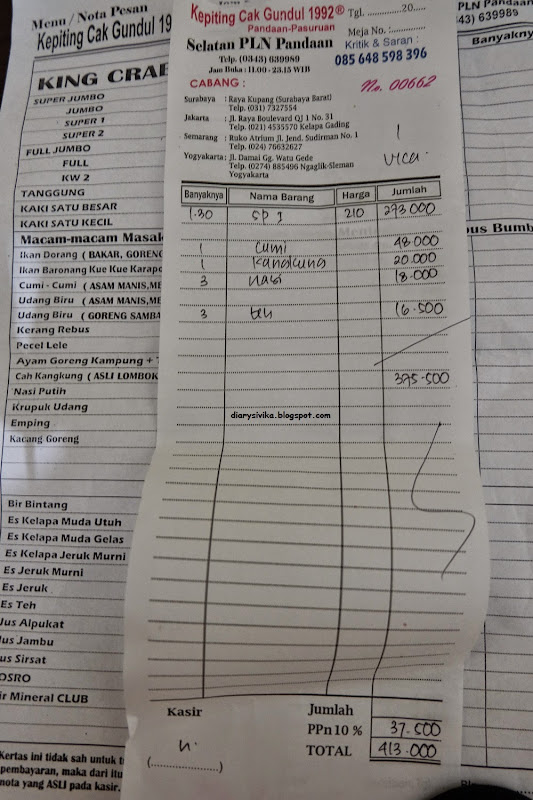 Menu / Nota Pesan
Kepiting Cak Gundul 19
KING CRAB
SUPER JUMBO
JUMBO
SUPER 1
SUPER 2
FULL JUMBO
FULL
KW 2
TANGGUNG
KAKI SATU BESAR
KAKI SATU KECIL
Macam-macam Masak
Ikan Dorang ( BAKAR, GORENG
Ikan Baronang Kue Kue Karapo
Cumi - Cumi ( ASAM MANIS,ME
Udang Biru ( ASAM MANIS,ME
Udang Biru ( GORENG SAMBA
Kerang Rebus
Pecel Lele
Ayam Goreng Kampung + T
Cah Kangkung ( ASLI LOMBOK
Nasi Putih
Krupuk Udang
Emping
Kacang Goreng
Bir Bintang
Es Kelapa Muda Utuh
Es Kelapa Muda Gelas
Es Kelapa Jeruk Murni
Es Jeruk Murni
Es Jeruk
Es Teh
Jus Alpukat
us Jambu
us Sirsat
OSRO
ir Mineral CLUB
Kertas ini tidak sah untuk t
pembayaran, maka dari itu
nota yang ASLI pada kasir.
Kepiting Cak Gundul 1992®
Pandaan-Pasuruan
Selatan PLN Pandaan
Telp. (0343) 639989
Jam Buka : 11.00 - 23.15 WIB
Tgl. ..............20.....
Meja No. :..............
Kritik & Saran :
085 648 598 396
CABANG :
No. 00662
Surabaya : Raya Kupang (Surabaya Barat)
Telp. (031) 7327554
Jakarta : Jl. Raya Boulevard QJ 1 No. 31
Telp. (021) 4535570 Kelapa Gading
Semarang : Ruko Atrium Jl. Jend. Sudirman No. 1
Telp. (024) 76632627
Yogyakarta : Jl. Damai Gg. Watu Gede
Telp. (0274) 885496 Ngaglik-Sleman
Yogyakarta
Banyaknya Nama Barang Harga Jumlah
1.30 SP 1 210 273000
1 cumi 48.000
1 kangkung 20.000
3 nasi 18.000
3 teh 16.500
375.500
diarysivika.blogspot.com
Kasir
(....................)
Jumlah
PPn 10 % 37.500
TOTAL 413.000
PLN Pandaan
43) 639989
Banyakny
us Bumb